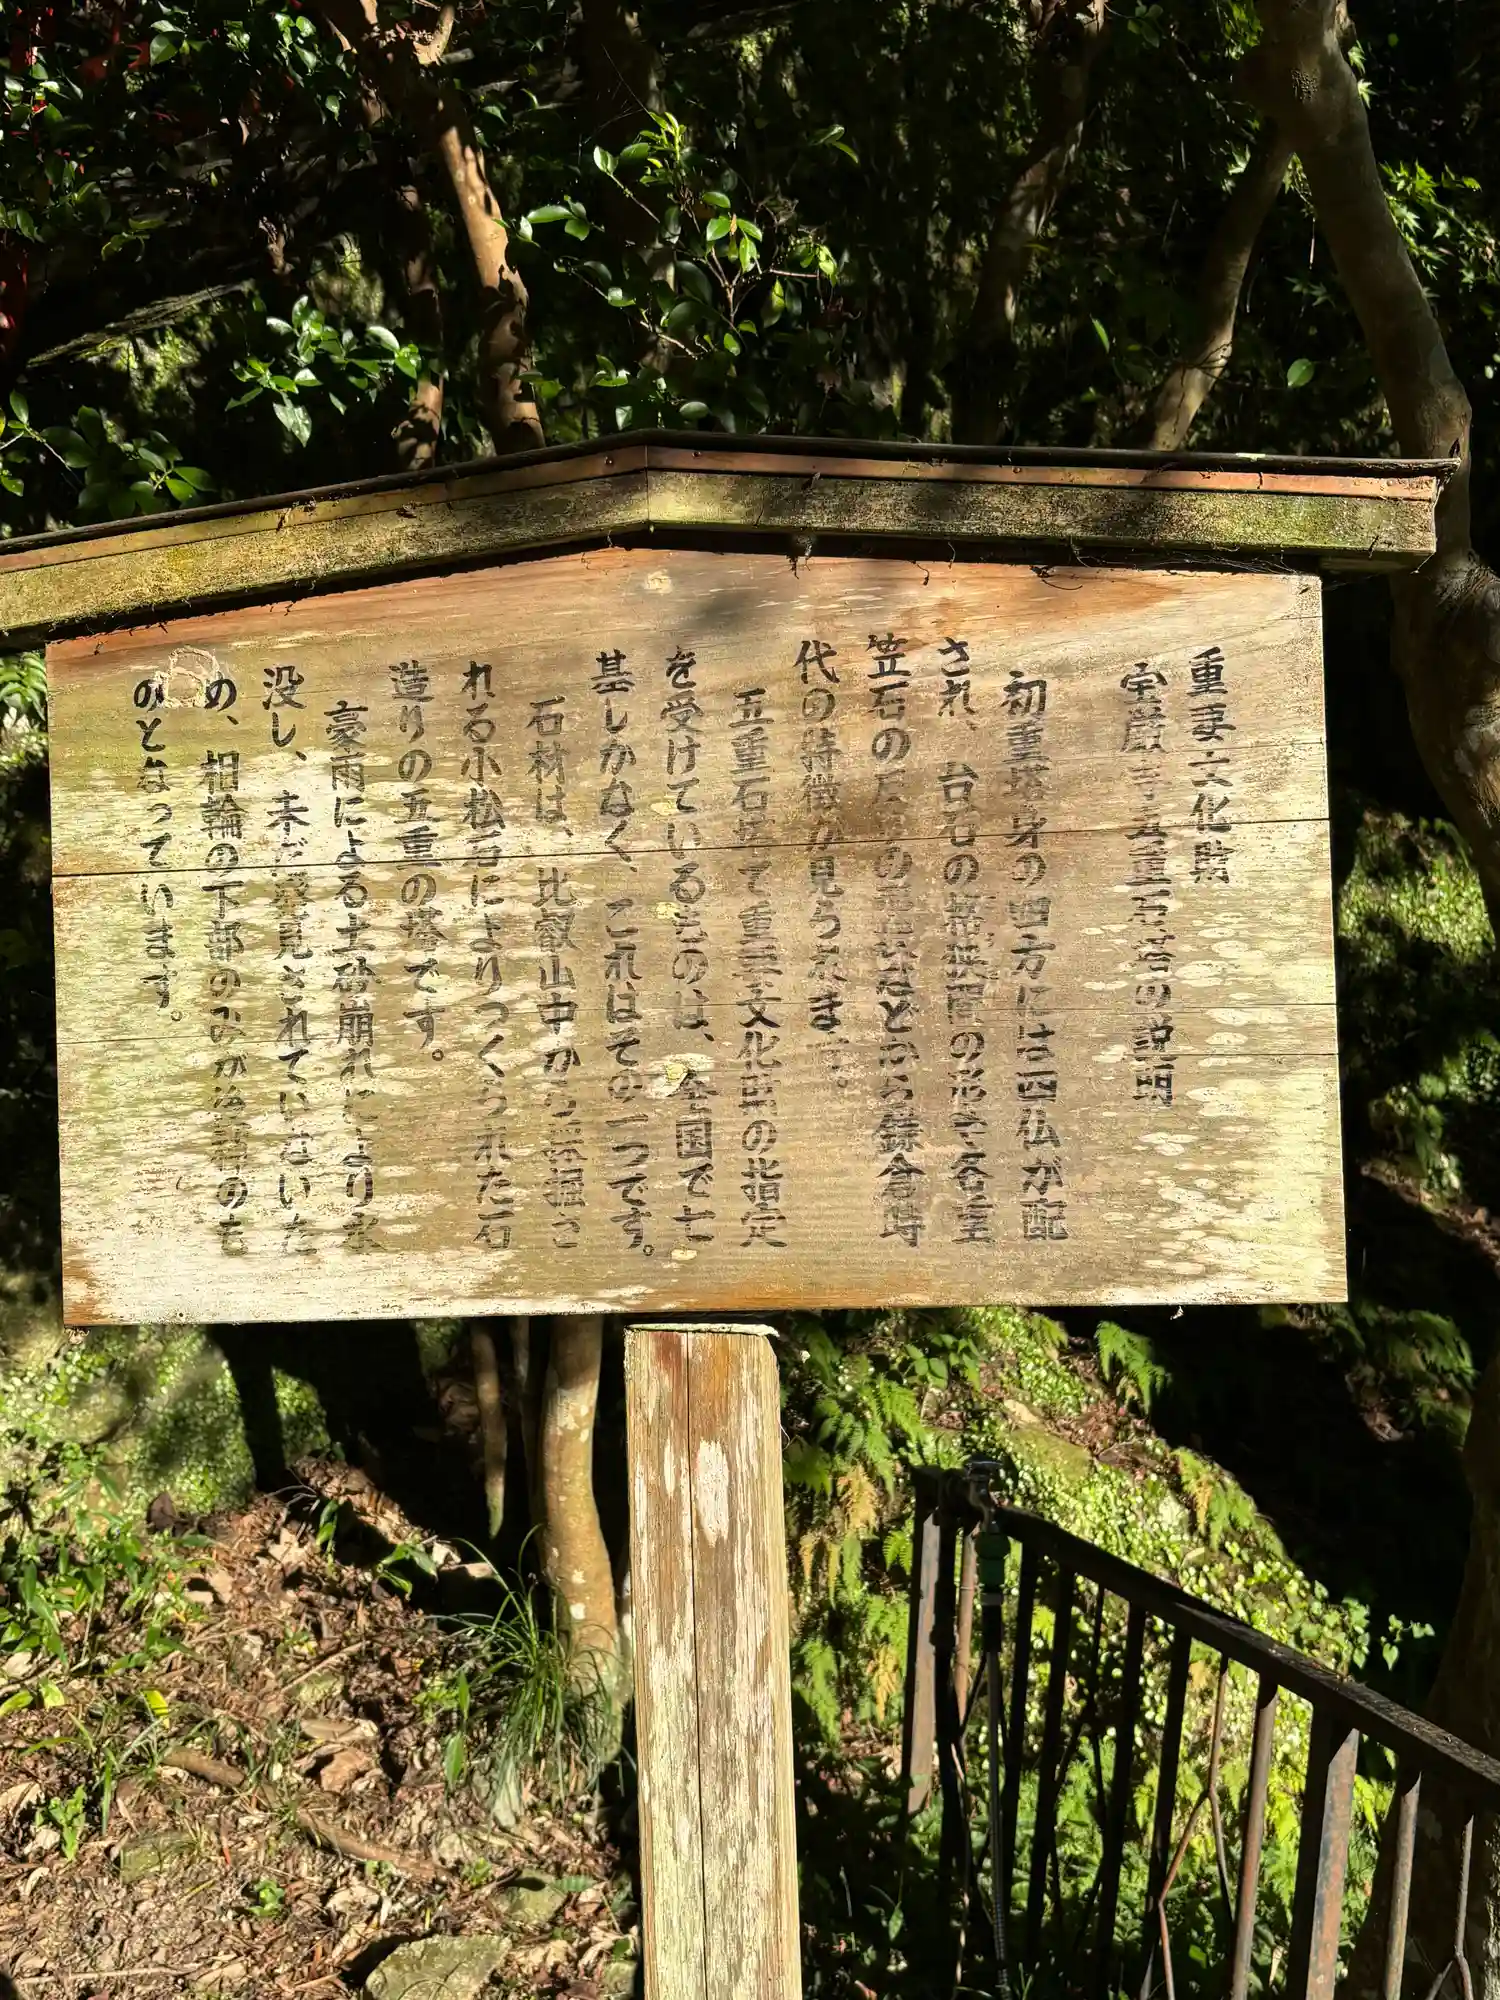 重要文化財
宝厳寺五重石塔の説明
初重塔身の四方には四仏が配
され、台石の格狭間の形や各重
笠石の反りの形などから鎌倉時
代の特徴が見られます。
五重石塔で重要文化財の指定
を受けているものは、全国で七
基しかなく、これはその一つです。
石材は、比叡山中から採掘さ
れる小松石によりつくられた石
造りの五重の塔です。
豪雨による土砂崩れにより水
没し、未だ発見されていないた
め、相輪の下部のみが後補のも
のとなっています。